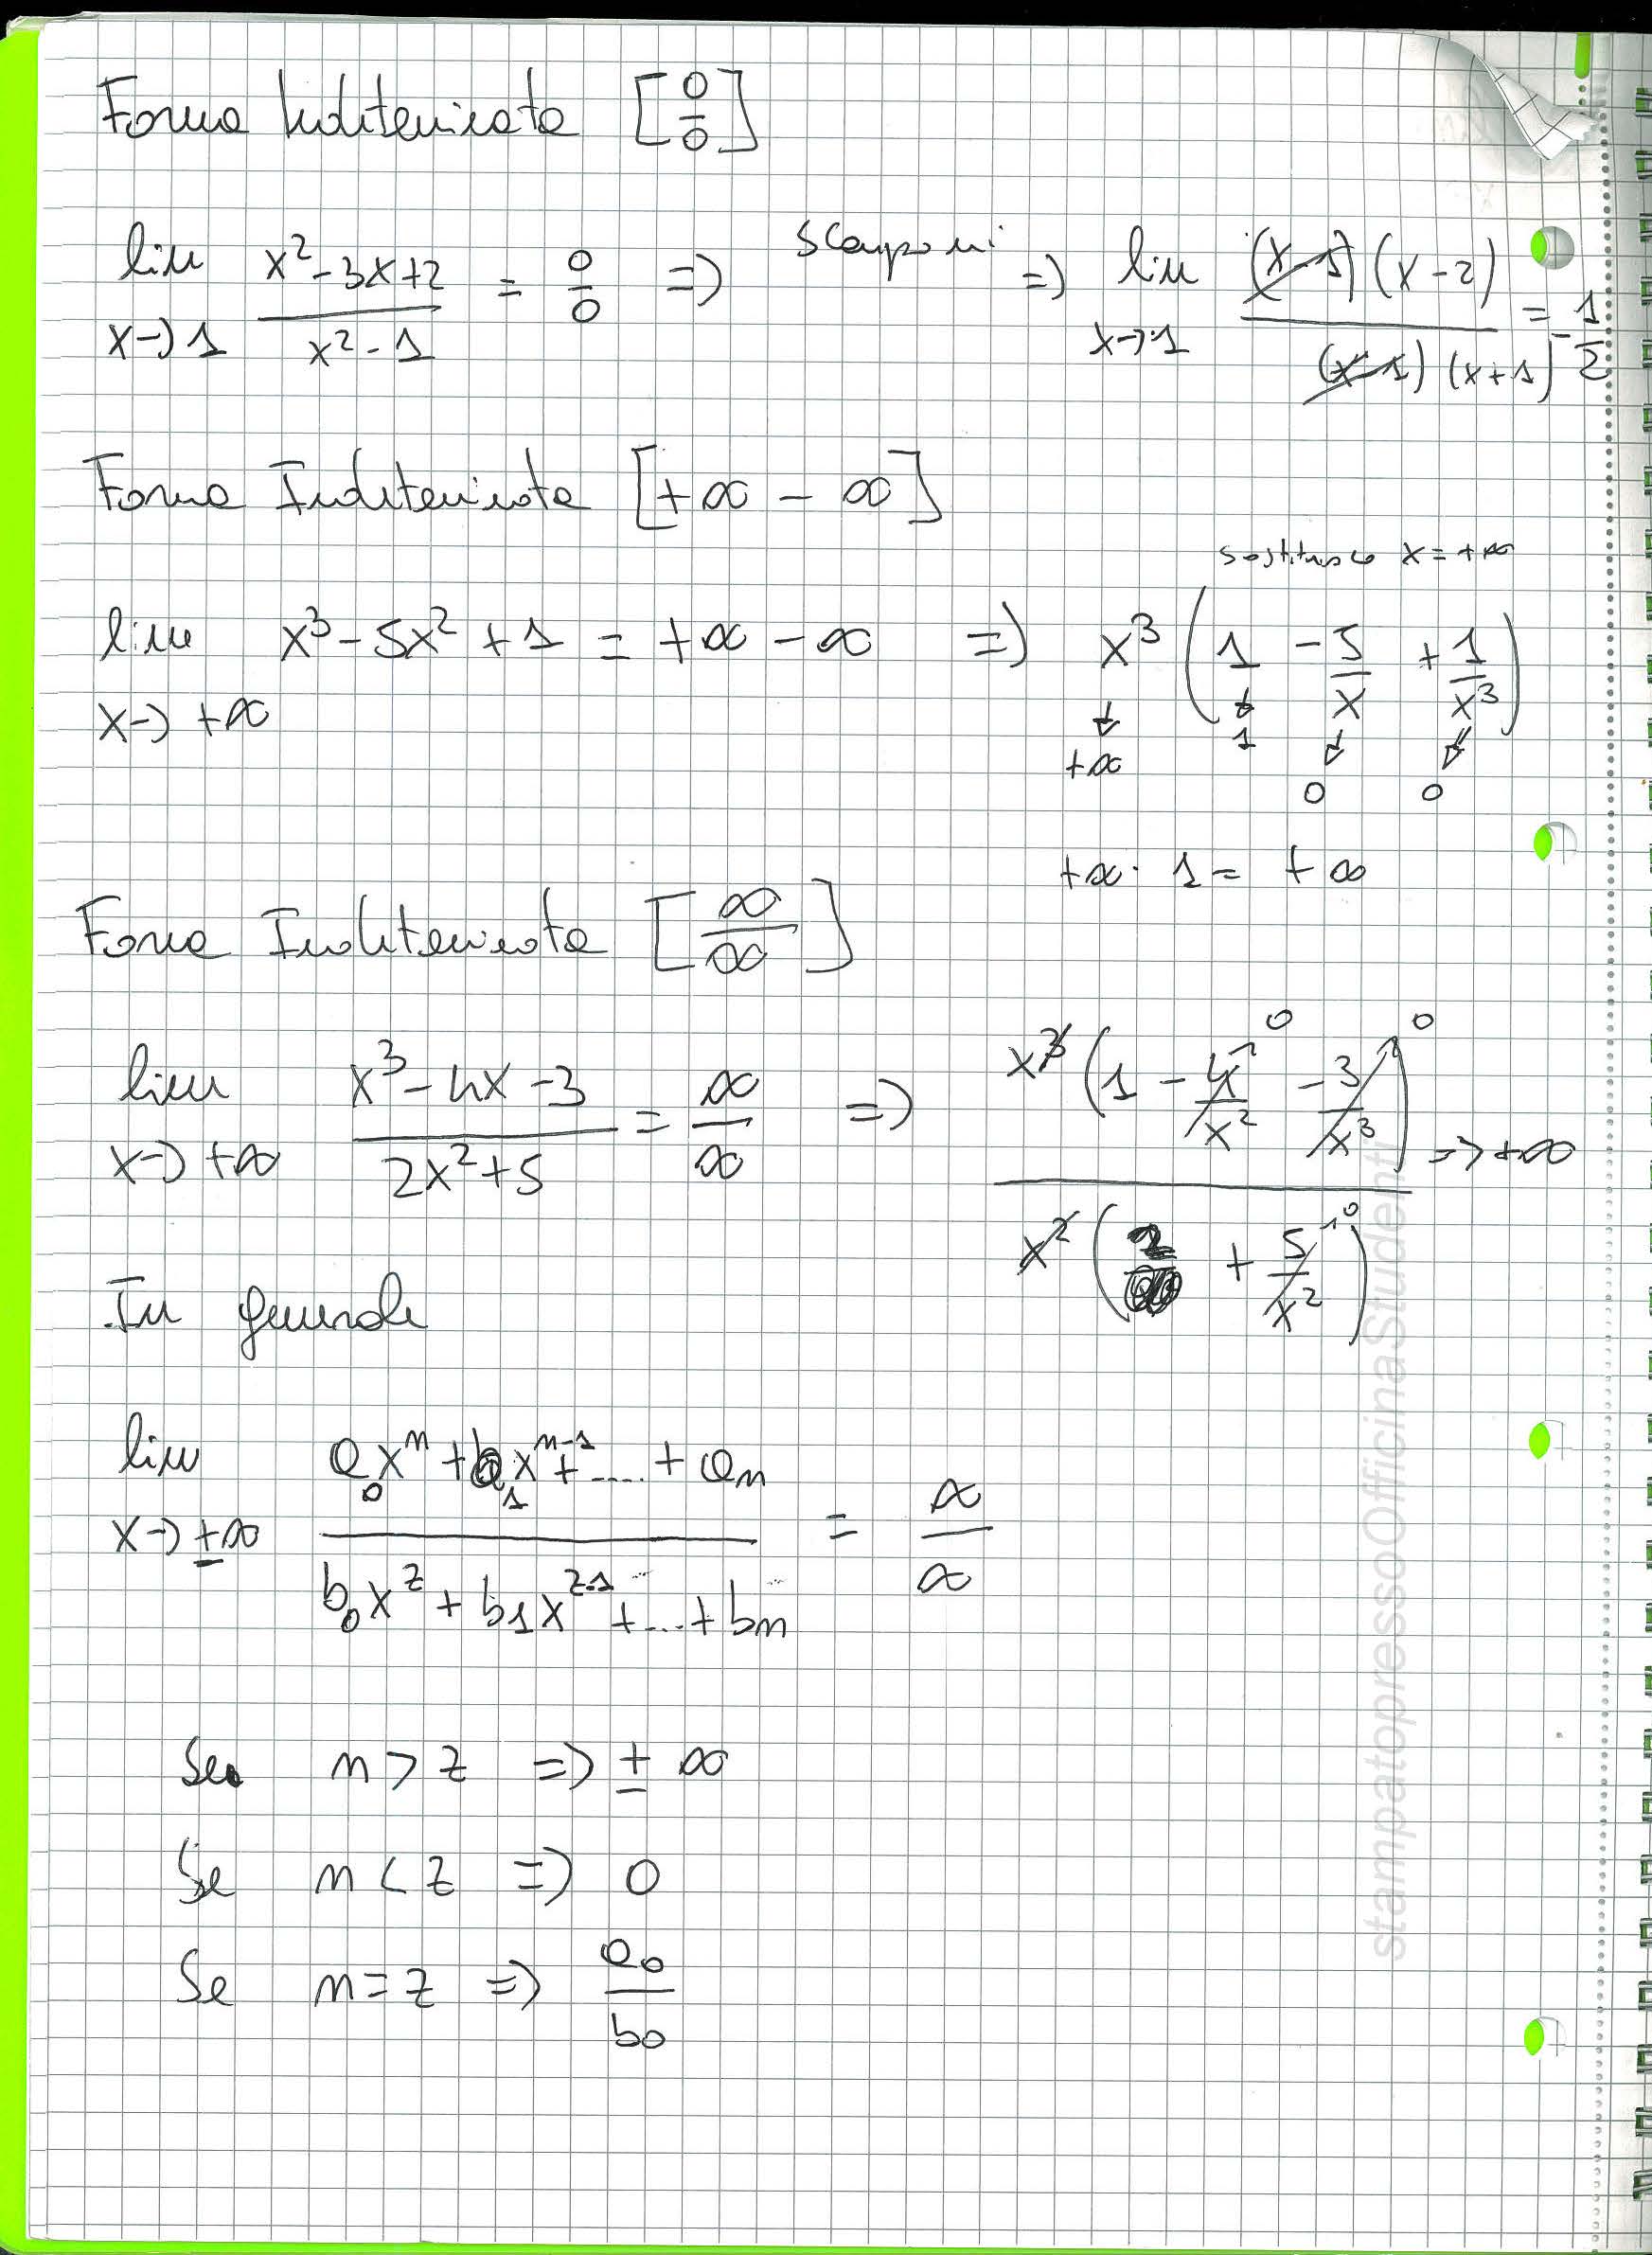 Forma Indeterminata [0/0]
lim x→1 (x² - 3x + 2)/(x² - 1) = 0/0 => scomponi => lim x→1 (x-1)(x-2)/(x-1)(x+1) = -1/2
Forma Indeterminata [+∞ - ∞]
sostituisco x = +∞
lim x→+∞ x³ - 5x² + 1 = +∞ - ∞ => x³ (1 - 5/x + 1/x³)
+∞ 1 0 0
+∞ · 1 = +∞
Forma Indeterminata [∞/∞]
lim x→+∞ (x³ - 4x - 3)/(2x² + 5) = ∞/∞ => x³(1 - 4/x² - 3/x³)/x²(2 + 5/x²) => +∞
0 0
0
In generale
lim x→±∞ (a₀xⁿ + a₁xⁿ⁻¹ + .... + aₙ)/(b₀x^z + b₁x^(z-1) + ... + bₙ) = ∞/∞
Se n > z => ± ∞
Se n < z => 0
Se n = z => a₀/b₀
stampatopressoOfficinaStudenti